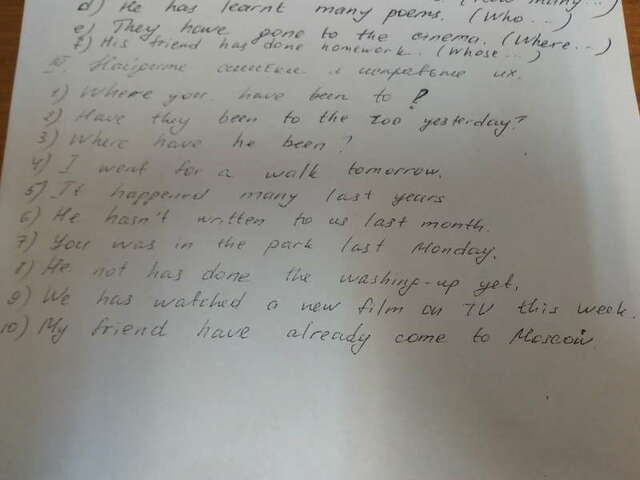 d) He has learnt many poems. (How many...)
e) They have gone to the cinema. (Where...)
f) His friend has done homework. (Whose...)
III. Найдите ошибки и исправьте их.
1) Where you have been to?
2) Have they been to the zoo yesterday?
3) Where have he been?
4) I went for a walk tomorrow.
5) It happened many last years
6) He hasn't written to us last month.
7) You was in the park last Monday.
8) He not has done the washing-up yet.
9) We has watched a new film on TV this week.
10) My friend have already come to Moscow.